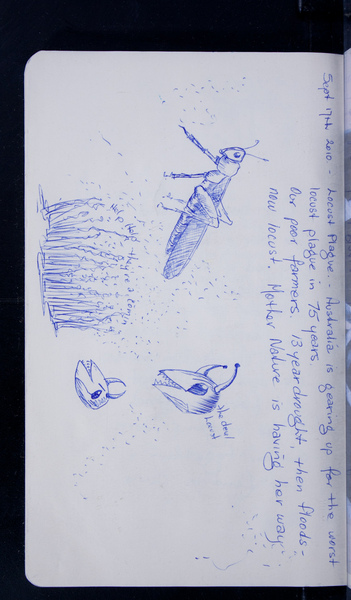 Sept 17th 2010 - Locust Plague - Australia is gearing up for the worst
locust plague in 75 years.
Our poor farmers. 13 year drought, then floods -
now locust. Mother Nature is having her way.
the devil
locust
help they're a comin